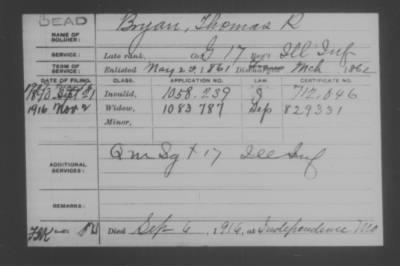 DEAD
NAME OF SOLDIER: Bryan, Thomas R
SERVICE: Late rank, Co. G 17 Reg't Ill Inf
TERM OF SERVICE: Enlisted May 25, 1861 Discharged Mch 186
DATE OF FILING. CLASS. APPLICATION NO. LAW. CERTIFICATE NO.
Invalid, 1058.239 712.046
1916 Nov 2 Widow, 1083787 Sep 829331
Minor,
ADDITIONAL SERVICES: Q M Sgt 17 Ill Inf
REMARKS:
Died Sep 6, 1916, at Independence Mo